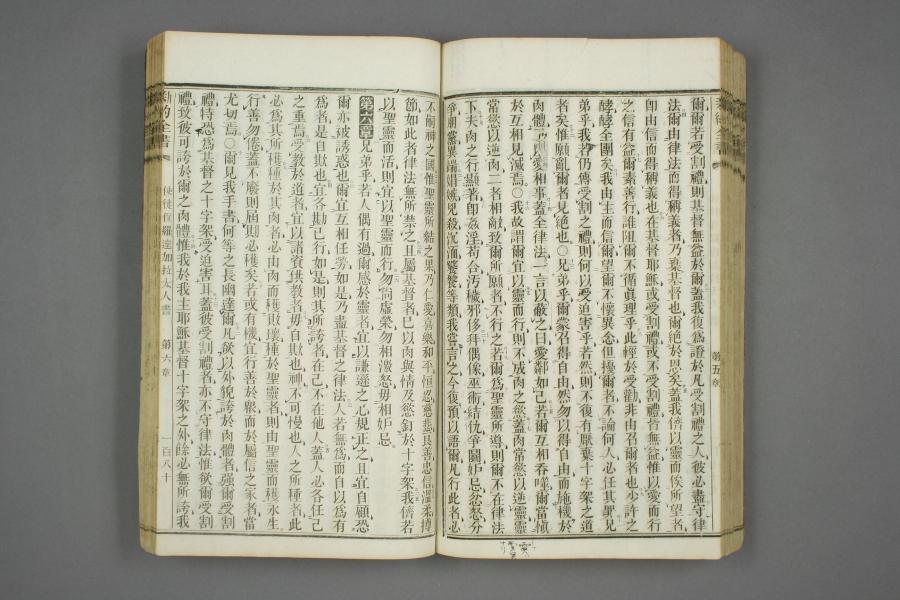 爾、爾若受割禮、則基督無益於爾、蓋我復爲證於凡受割禮之人、彼必盡守律
法、爾由律法而得稱義者、乃棄基督也、爾絕於恩矣、蓋我儕以靈而俟所望者、
卽由信而得稱義也、在基督耶穌、或受割禮、或不受割禮、皆無益、惟以愛而行
之信有益、爾素善行、誰阻爾不循眞理乎、此𢖩於勸、非由召爾者也、少許之
酵、酵全團矣、我由主而信爾望爾不懷異念、但擾爾者、不論何人、必任其罪、兄
弟乎、我若仍傳受割之禮、則何以受迫害乎、若然、則不復有厭棄十字架之道
者矣、惟願亂爾者見絕也、○兄弟乎、爾蒙召得自由、然勿以得自由而施機於
肉體、乃以愛相事、蓋全律法、一言以蔽之曰、愛鄰如己、若爾互相吞噬、爾當愼
於互相見滅焉、○我故謂爾宜以靈而行、則不成肉之慾、蓋肉常慾以逆靈、靈
常慾以逆肉、二者相敵、致爾所願者不行之、若爾爲聖靈所導、則爾不在律法
下、夫肉之行顯著、卽姦淫、苟合、汚穢、邪侈、拜偶像、巫術、結仇、爭鬪、妒忌、忿怒、分
爭、朋黨、異端、媢嫉、兇殺、沉湎、饕餮等類、我嘗言之、今復預以語爾、凡行此者、必
第五章
不嗣神之國、惟聖靈所結之果、乃仁愛、喜樂、和平、恒忍、慈悲、良善、忠信、溫柔、撙
節、如此者、律法無所禁之、且屬基督者、已以肉與情及慾、釘於十字架、我儕若
以聖靈而活、則宜以聖靈而行、勿尙虛榮、勿相激怒、毋相妒忌、
第六章 兄弟乎、若人偶有過、爾感於靈者、宜以謙遜之心規正之、且宜自顧、恐
爾亦被誘惑也、爾宜互相任勞、如是乃盡基督之律法、人若無爲、而自以爲有
爲者、是自欺也、宜各勘己行、如是、則其所誇者在己、不在他人、蓋人必各任己
之重焉、受敎於道者、宜以諸資供敎者、毋自欺也、神不可慢也、人之所種者、此
必爲其所穫、種於其肉者、必由肉而穫敗壞、種於聖靈者、則由聖靈而穫永生、
行善勿倦、蓋不廢、則屆期必穫矣、若或有機、宜行善於衆、而於屬信之家者、當
尤切焉、○爾見我手書何等之長函達爾、凡欲以外貌誇於肉體者、强爾受割
禮、特恐爲基督之十字架受迫害耳、蓋彼受割禮者、亦不守律法、惟欲爾受割
禮、致彼可誇於爾之肉體、惟我於我主耶穌基督十字架之外、餘必無所誇、我
新約全書
使徒保羅達加拉太人書
第六章
一百八十